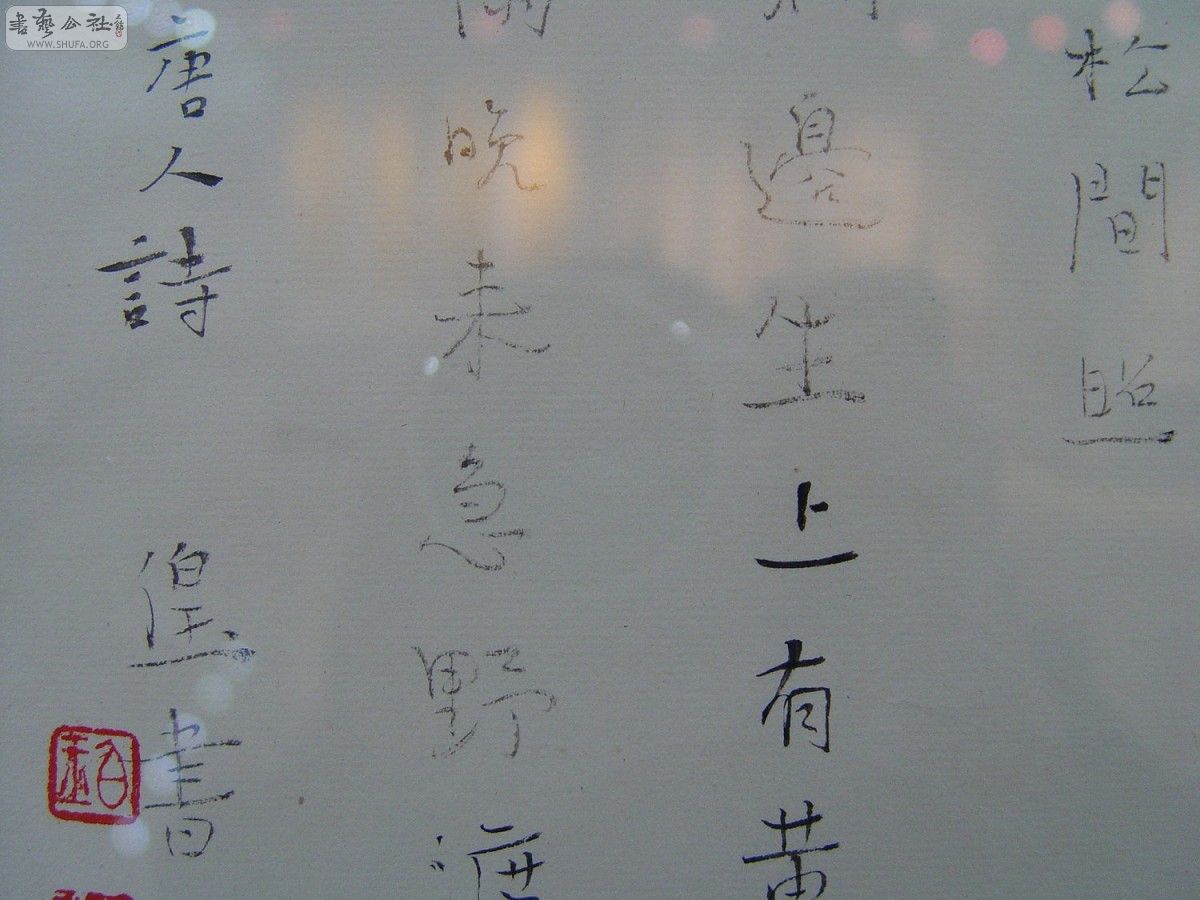 松間照
澗邊生上有黃
雨晚来急野渡
唐人詩
偟書
書藝公社
WWW.SHUFA.ORG